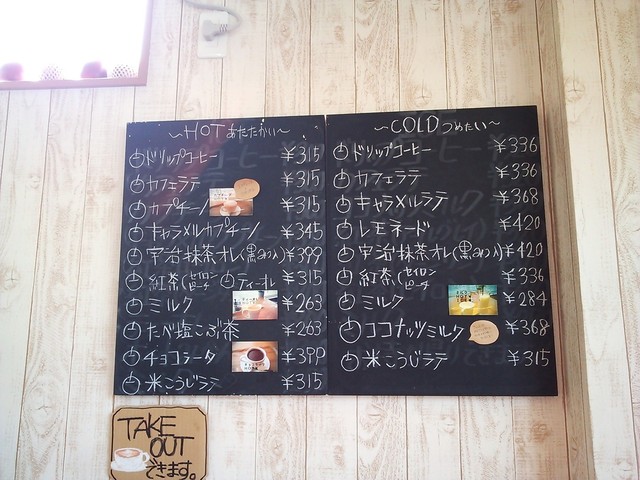 ～HOTあたたかい～
ドリップコーヒー ￥315
カフェラテ ￥315
カプチーノ ￥315
キャラメルカプチーノ ￥345
宇治抹茶オレ(黒みつ入) ￥399
紅茶(セイロン ピーチ ティーオレ ￥315
ミルク ￥263
たべ塩こぶ茶 ￥263
チョコラータ ￥399
米こうじラテ ￥315
～COLDつめたい～
ドリップコーヒー ￥336
カフェラテ ￥336
キャラメルラテ ￥368
レモネード ￥420
宇治抹茶オレ(黒みつ入) ￥420
紅茶(セイロン ピーチ ￥336
ミルク ￥284
ココナッツミルク ￥368
米こうじラテ ￥315
TAKE
OUT
できます。